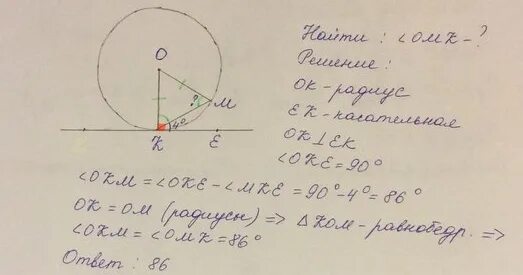 Найти : ∠OMK - ?
Решение :
OK - радиус
EK - касательная
OK ⊥ EK
∠OKE = 90°
O
?
M
4°
K
E
∠OKM = ∠OKE - ∠MKE = 90° - 4° = 86°
OK = OM (радиусы) => △KOM - равнобедр. =>
∠OKM = ∠OMK = 86°
Ответ : 86